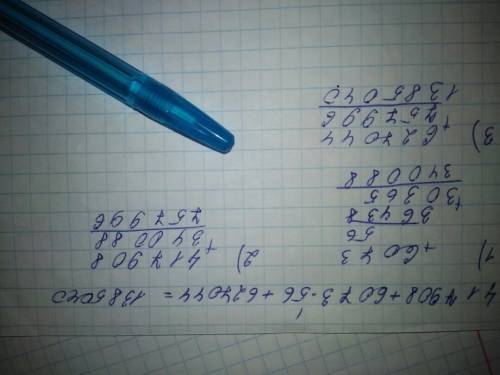 417908+6073·56+627044=1385040
1) ×6073
56
36438
+30365
340088
2) 417908
+340088
757996
3) 627044
+757996
1385040